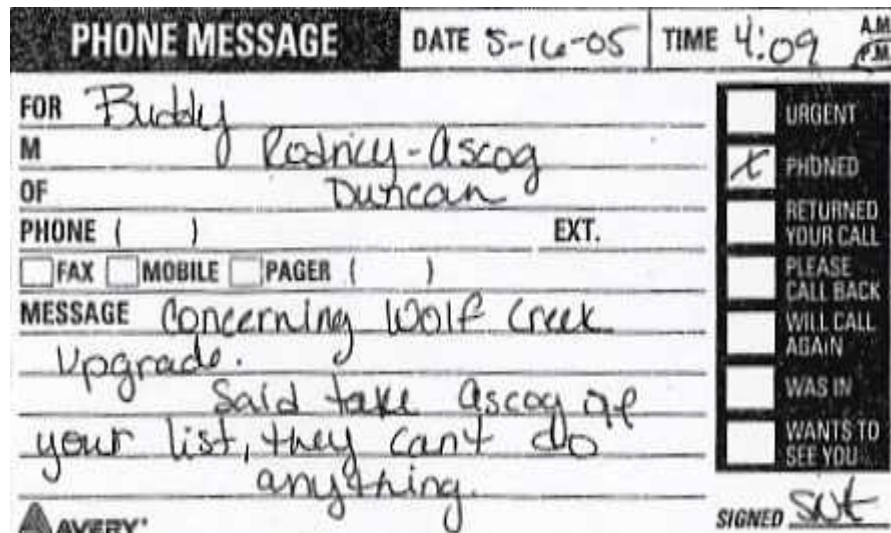 PHONE MESSAGE DATE 5-16-05 TIME 4:09 A.M. P.M.
FOR Buddy
M Rodney-Ascog
OF Duncan
PHONE ( ) EXT.
FAX MOBILE PAGER ( )
MESSAGE Concerning Wolf Creek
Upgrade.
Said take ascog off
your list, they cant do
anything.
URGENT
X PHONED
RETURNED
YOUR CALL
PLEASE
CALL BACK
WILL CALL
AGAIN
WAS IN
WANTS TO
SEE YOU
AVERY
SIGNED